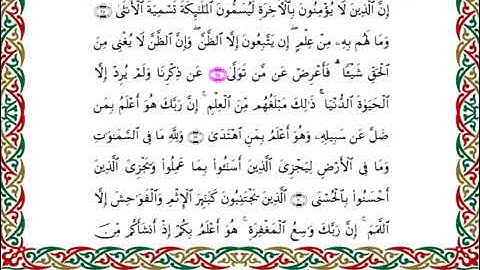 إِنَّ ٱلَّذِينَ لَا يُؤْمِنُونَ بِٱلْأَخِرَةِ لَيُسَمُّونَ ٱلْمَلَٰٓئِكَةَ تَسْمِيَةَ ٱلْأُنثَىٰ
وَمَا لَهُم بِهِۦ مِنْ عِلْمٍ ۖ إِن يَتَّبِعُونَ إِلَّا ٱلظَّنَّ ۖ وَإِنَّ ٱلظَّنَّ لَا يُغْنِى مِنَ
ٱلْحَقِّ شَيْـًٔا فَأَعْرِضْ عَن مَّن تَوَلَّىٰ عَن ذِكْرِنَا وَلَمْ يُرِدْ إِلَّا
ٱلْحَيَوٰةَ ٱلدُّنْيَا ذَٰلِكَ مَبْلَغُهُم مِّنَ ٱلْعِلْمِ ۚ إِنَّ رَبَّكَ هُوَ أَعْلَمُ بِمَن
ضَلَّ عَن سَبِيلِهِۦ وَهُوَ أَعْلَمُ بِمَنِ ٱهْتَدَىٰ وَلِلَّهِ مَا فِى ٱلسَّمَٰوَٰتِ
وَمَا فِى ٱلْأَرْضِ لِيَجْزِىَ ٱلَّذِينَ أَسَٰٓـُٔوا۟ بِمَا عَمِلُوا۟ وَيَجْزِىَ ٱلَّذِينَ
أَحْسَنُوا۟ بِٱلْحُسْنَى ٱلَّذِينَ يَجْتَنِبُونَ كَبَٰٓئِرَ ٱلْإِثْمِ وَٱلْفَوَٰحِشَ إِلَّا
ٱللَّمَمَ ۚ إِنَّ رَبَّكَ وَٰسِعُ ٱلْمَغْفِرَةِ ۚ هُوَ أَعْلَمُ بِكُمْ إِذْ أَنشَأَكُم مِّنَ